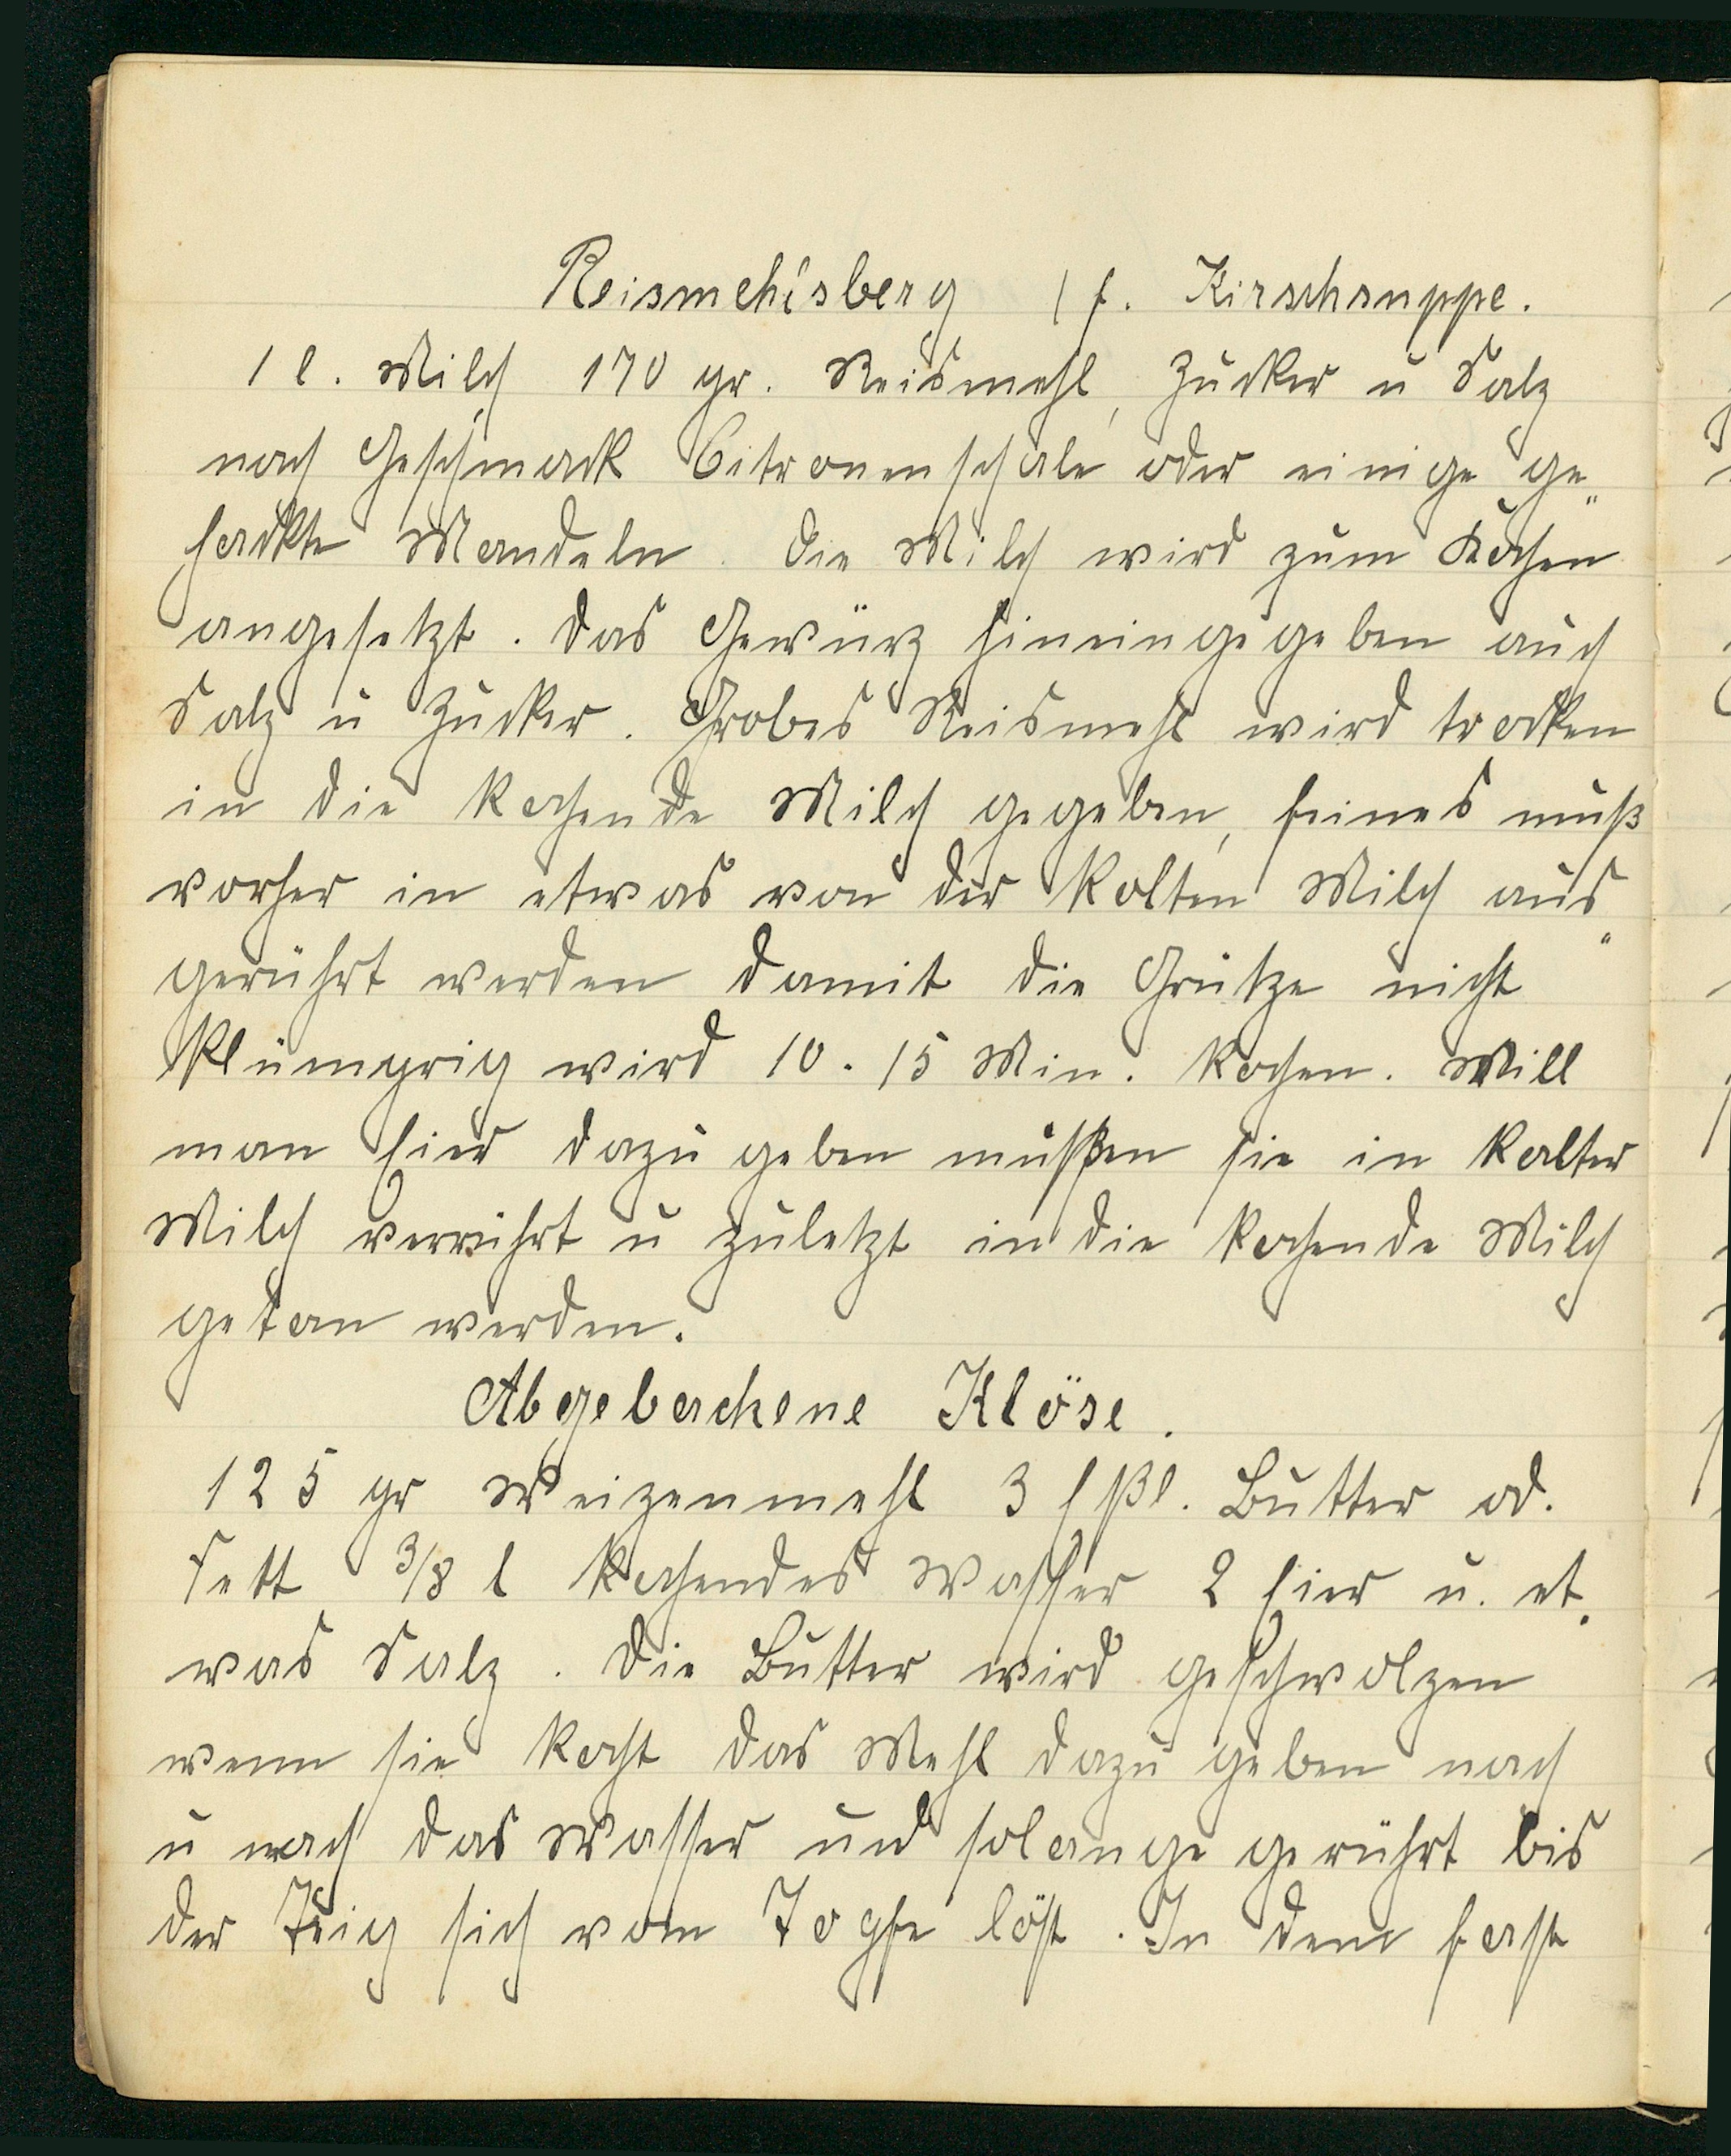 Reismehlsberg 1 f. Kirschsuppe.
1 l. Milch 170 gr. Reismehl, Zucker u Salz
nach Geschmack Citronenschale oder einige ge„
hackte Mandeln. Die Milch wird zum Kochen
angesetzt. Das Gewürz hineingegeben auch
Salz u Zucker. Grobes Reismehl wird trocken
in die kochende Milch gegeben, feines muß
vorher in etwas von der kalten Milch aus„
gerührt werden damit die Grütze nicht
klümprig wird 10. 15 Min. kochen. Will
man Eier dazu geben müßen sie in kalter
Milch verrührt u zuletzt in die kochende Milch
getan werden.
Abgebackene Klöse.
125 gr Weizenmehl 3 Eßl. Butter od.
Fett 3/8 l kochendes Wasser 2 Eier u. et.
was Salz. Die Butter wird geschwolzen
wenn sie kocht das Mehl dazu geben nach
u nach das Wasser und solange gerührt bis
der Teig sich vom Topfe löst. In dem fast